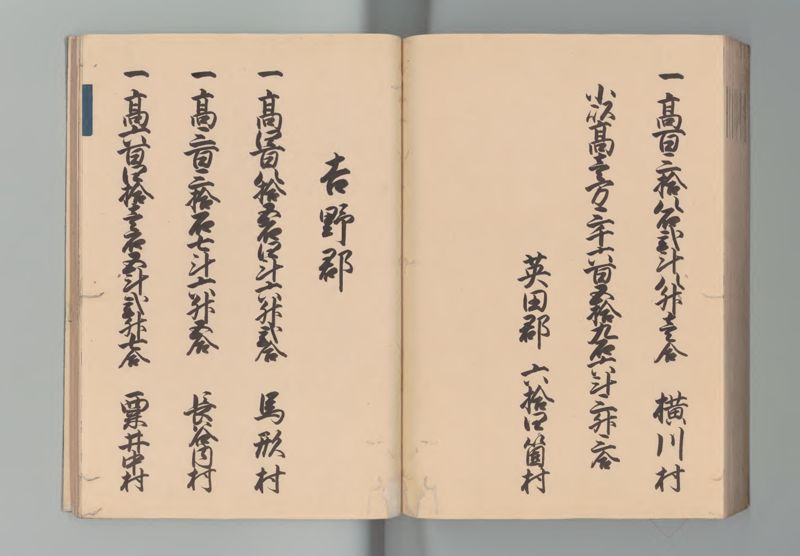 一 高百三拾八石弐斗八升壱合 横川村
小以高壱万三千六百五拾九石六斗三升三合
英田郡 六拾四箇村
吉野郡
一 高四百八拾五石四斗六升弐合 馬形村
一 高三百三拾石七斗六升五合 長谷内村
一 高六百四拾壱石五斗弐升七合 粟井中村